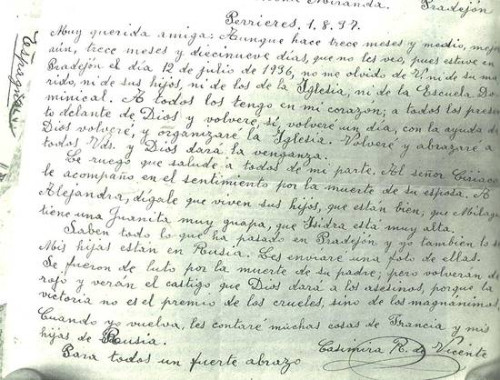 Miranda. Pradejón
Perrieres, 1.8.37.
Muy querida amiga: Aunque hace trece meses y medio, mejor
aún, trece meses y diecinueve días, que no les veo, pues estuve en
Pradejón el día 12 de julio de 1936, no me olvido de V. ni de su ma-
rido, ni de sus hijos, ni de los de la Iglesia, ni de la Escuela Do-
minical. A todos los tengo en mi corazón; a todos los presen-
to delante de Dios y volveré sí, volveré un día, con la ayuda de
Dios volveré, y organizaré la Iglesia. Volveré y abrazaré a
todos Vds. y Dios dará la venganza.
Le ruego que salude a todos de mi parte. Al señor Ciriaco
le acompaño en el sentimiento por la muerte de su esposa. A
Alejandra, dígale que viven sus hijos, que están bien, que Milagros
tiene una Juanita muy guapa, que Isidra está muy alta.
Saben todo lo que ha pasado en Pradejón y yo también lo sé.
Mis hijas están en Rusia. Les enviaré una foto de ellas.
Se fueron de luto por la muerte de su padre; pero volverán de
rojo y verán el castigo que Dios dará a los asesinos, porque la
victoria no es el premio de los crueles, sino de los magnánimos.
Cuando yo vuelva, les contaré muchas cosas de Francia y mis
hijas de Rusia.
Para todos un fuerte abrazo
Casimira R. de Vicente